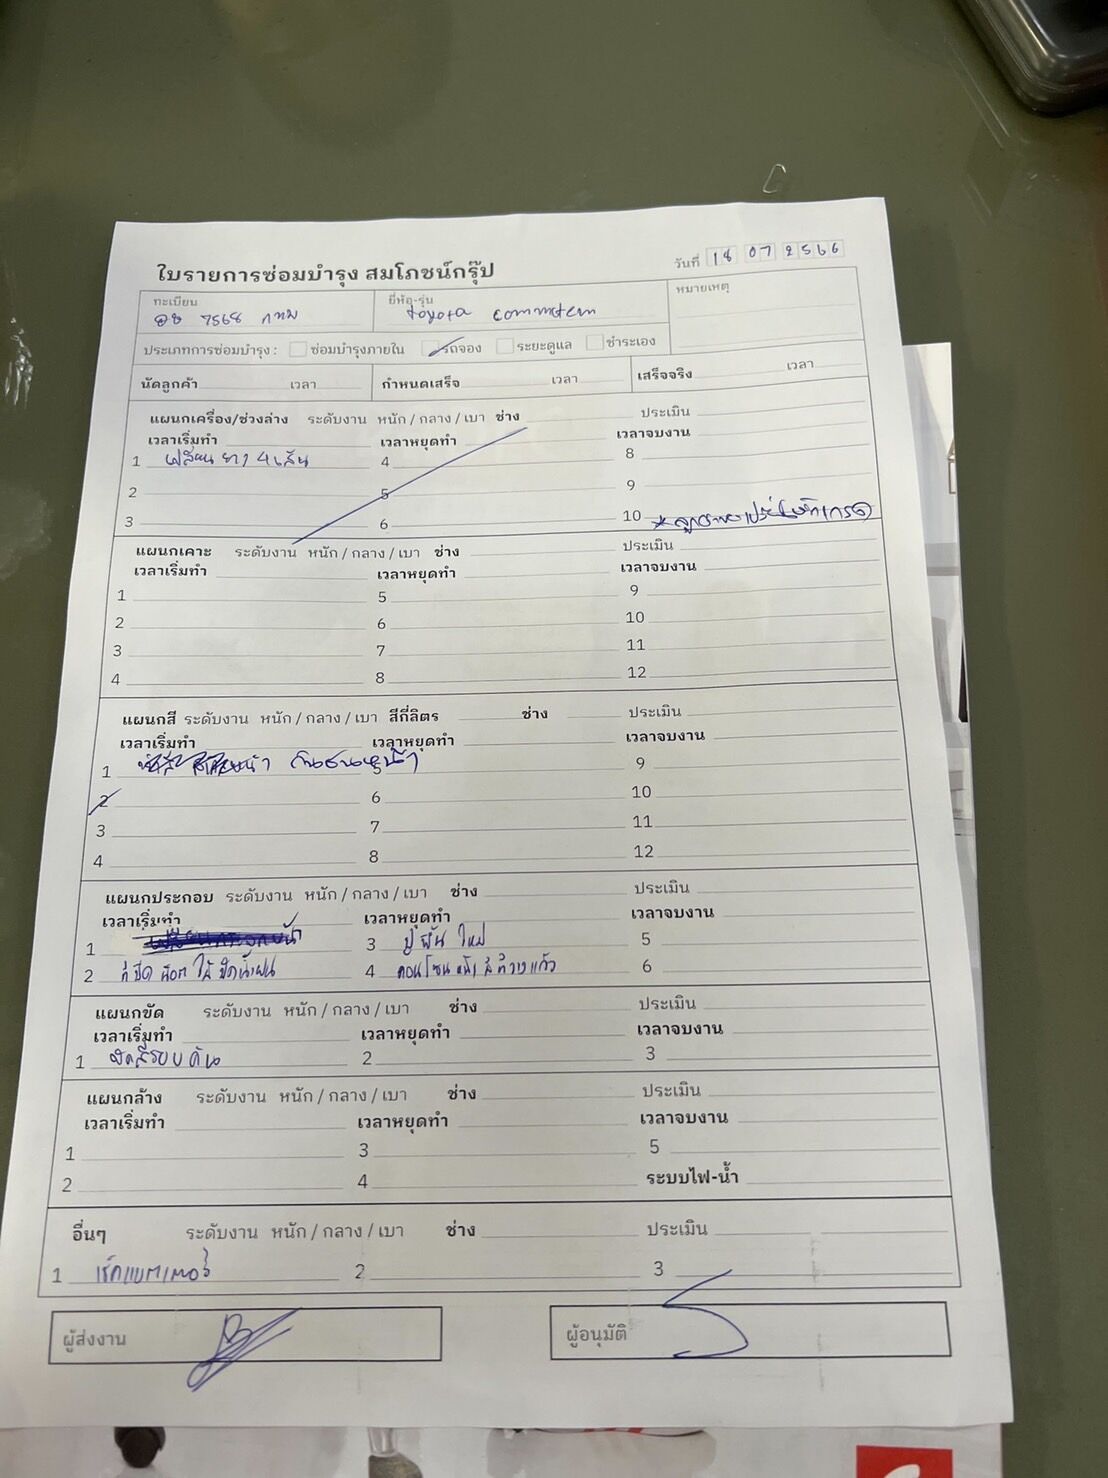 ใบรายการซ่อมบำรุง สมโภชน์กรุ๊ป
วันที่ 18 07 2566
ทะเบียน
7568 กทม
ยี่ห้อ-รุ่น
toyota
หมายเหตุ
ประเภทการซ่อมบำรุง : ซ่อมบำรุงภายใน รถจอง ระยะดูแล ชำระเอง
นัดลูกค้า เวลา กำหนดเสร็จ เวลา เสร็จจริง เวลา
แผนกเครื่อง/ช่วงล่าง ระดับงาน หนัก / กลาง / เบา ช่าง ประเมิน
เวลาเริ่มทำ เวลาหยุดทำ เวลาจบงาน
1 เปลี่ยน ยาง 4 เส้น 4 8
2 5 9
3 6 10
แผนกเคาะ ระดับงาน หนัก / กลาง / เบา ช่าง ประเมิน
เวลาเริ่มทำ เวลาหยุดทำ เวลาจบงาน
1 5 9
2 6 10
3 7 11
4 8 12
แผนกสี ระดับงาน หนัก / กลาง / เบา สีกี่ลิตร ช่าง ประเมิน
เวลาเริ่มทำ เวลาหยุดทำ เวลาจบงาน
1 กันชนหน้า 5 9
2 6 10
3 7 11
4 8 12
แผนกประกอบ ระดับงาน หนัก / กลาง / เบา ช่าง ประเมิน
เวลาเริ่มทำ เวลาหยุดทำ เวลาจบงาน
1 3 ปูพื้น ใหม่ 5
2 ที่ปิด น๊อต ใส่ ปัดน้ำฝน 4 คอนโซน 6
แผนกขัด ระดับงาน หนัก / กลาง / เบา ช่าง ประเมิน
เวลาเริ่มทำ เวลาหยุดทำ เวลาจบงาน
1 ขัดสีรอบคัน 2 3
แผนกล้าง ระดับงาน หนัก / กลาง / เบา ช่าง ประเมิน
เวลาเริ่มทำ เวลาหยุดทำ เวลาจบงาน
1 3 5
2 4 ระบบไฟ-น้ำ
อื่นๆ ระดับงาน หนัก / กลาง / เบา ช่าง ประเมิน
1 เช็คแบตเตอรี่ 2 3
ผู้ส่งงาน ผู้อนุมัติ